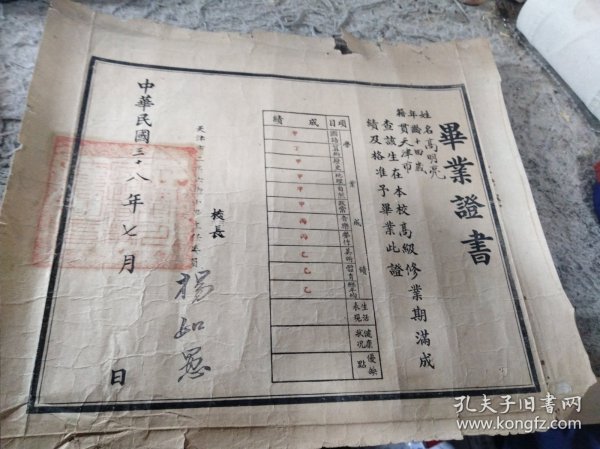 畢業證書
姓名高明亮
年齡十四歲
籍貫天津市
查該生在本校高級修業期滿成
績及格准予畢業此證
項目
成績
學業成績
國語
算術
歷史
地理
自然
音樂
美術
體育
總平均
生活表現
健康狀況
優缺點
甲
丁
甲
甲
甲
甲
丙
丙
乙
乙
乙
校長
楊如愚
中華民國三十八年七月
日
孔夫子旧书网
www.kongfz.com